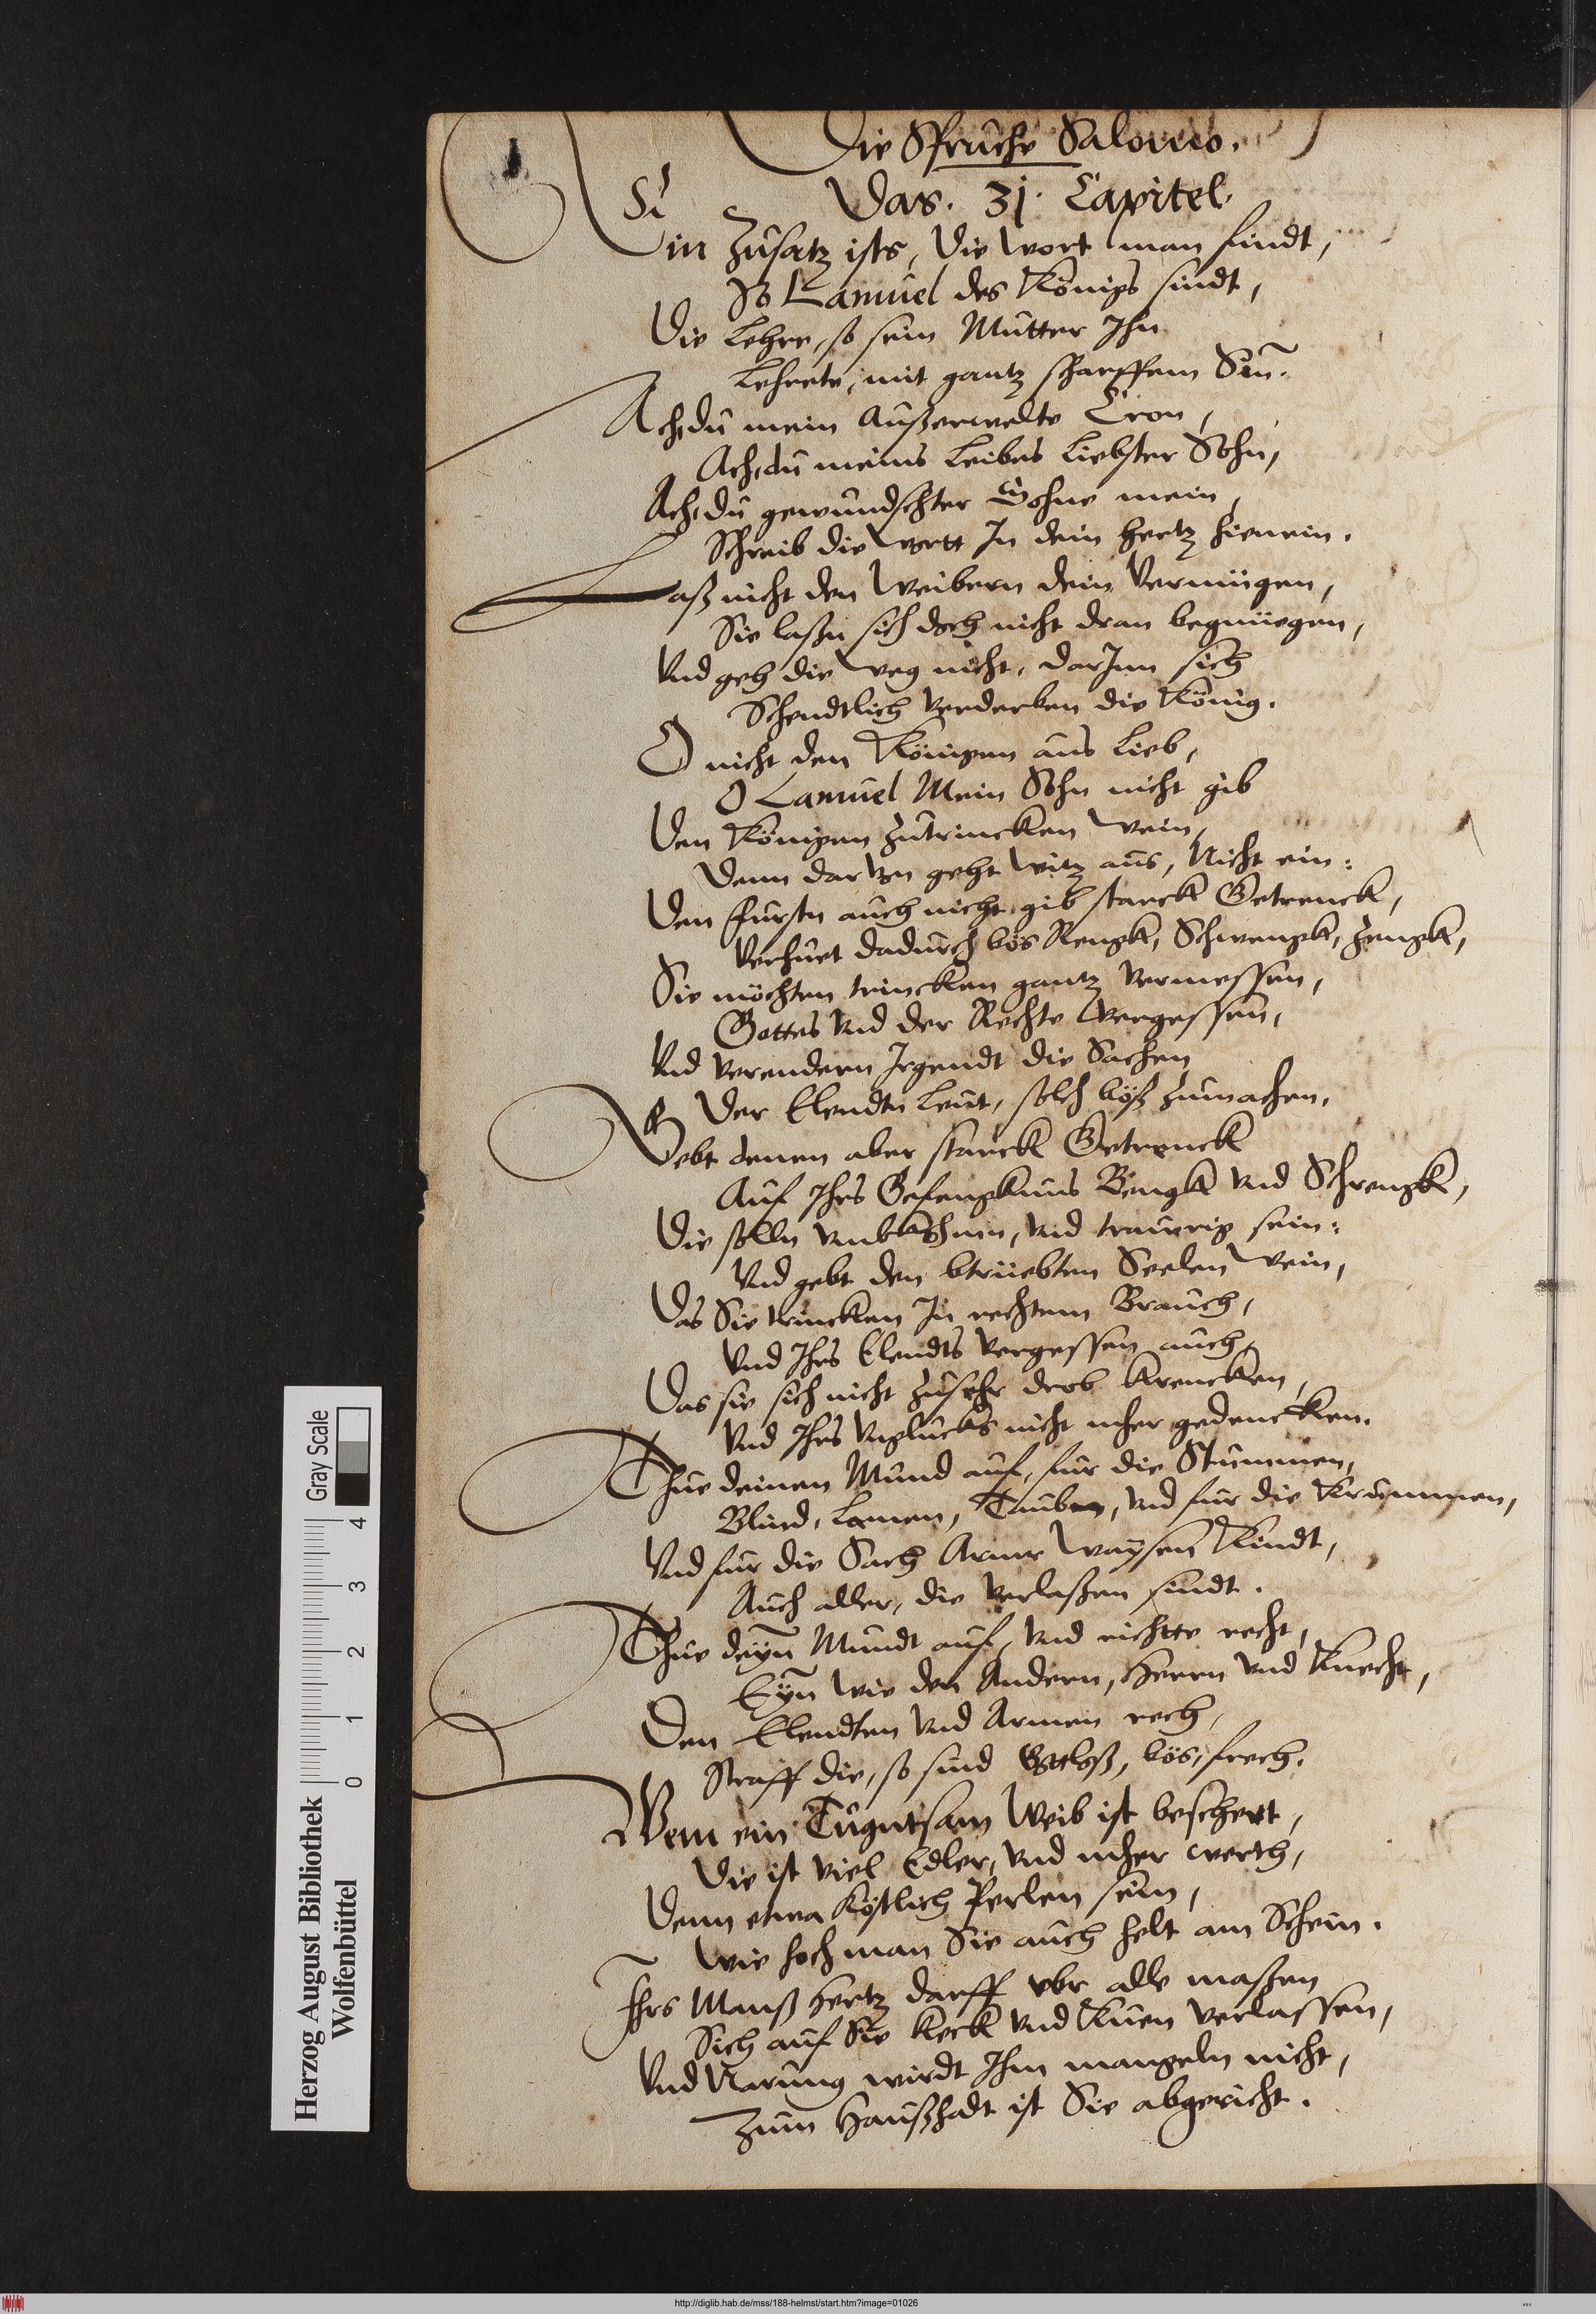 Die Spruche Salomo.
Das. 31. Capitel.
Ein Zusatz ists, die wort man findt,
So Lamuel des Königs sindt,
Die Lehre, so sein Mutter Ihn
Lehrete, mit gantz scharffem Sin̄.
Ach, du mein Außerwelte Cron,
Ach, du meins Leibes Liebster Sohn,
Ach, du gewundschter Sohne mein,
Schreib die wortt In dein hertz hienein.
Laß nicht den Weibern dein Vermügen,
Sie laßn sich doch nicht dran begnüegen,
Vnd geh die weg nicht, darInn sich
Schendtlich verderben die König.
O nicht den Königen aus Lieb,
O Lamuel Mein Sohn nicht gib
Den Königen zutrincken wein,
Denn darvon geht witz aus, Nicht ein:
Den fursten auch nicht gib starck Getrenck,
Verhuet dadurch bös Rengk, Schwengk, Zengk,
Sie möchten trincken gantz vermessen,
Gottes vnd der Rechte vergessen,
Vnd verendern Irgendt die Sachen
Der Elendtn Leut, solch böß zumachen.
Gebt denen aber starck Getrenck
Auf Ihrs Gefengknus Bengk vnd Schrengk,
Die solln vmbkohmen, vnd traurig sein:
Vnd gebt den btrüebten Seelen wein,
Das Sie trincken In rechtem Brauch,
Vnd Ihrs Elendts vergessen auch,
Das sie sich nicht zusehr drob krencken,
Vnd Ihrs vnglucks nicht mher gedencken.
Thue deinen Mund auf, fur die Stummen,
Blind, Lamen, Tauben, vnd fur die Krummen,
Vnd fur die Sach Armr waysen Kindt,
Auch aller, die verlaßen sindt.
Thue deyn̄ Mundt auf, vnd richtte recht,
Eyn̄ wie den Andern, Herrn vnd Knecht,
Den Elendten vnd Armen rech,
Straff die, so sind Gottloß, bös, frech.
Wem ein Tugntsam Weib ist beschert,
Die ist viel Edler, vnd mher werth,
Denn etwa Köstlich Perlen sein,
Wie hoch man Sie auch helt am Schein.
Ihrs Manß hertz darff vbr alle maßen
Sich auf Sie keck vnd kuen verlassen,
Vnd Narung wirdt Ihm mangeln nicht,
Zum Haußhadt ist Sie abgericht.
Herzog August Bibliothek
Wolfenbüttel
Gray Scale
0 1 2 3 4
http://diglib.hab.de/mss/188-helmst/start.htm?image=01026